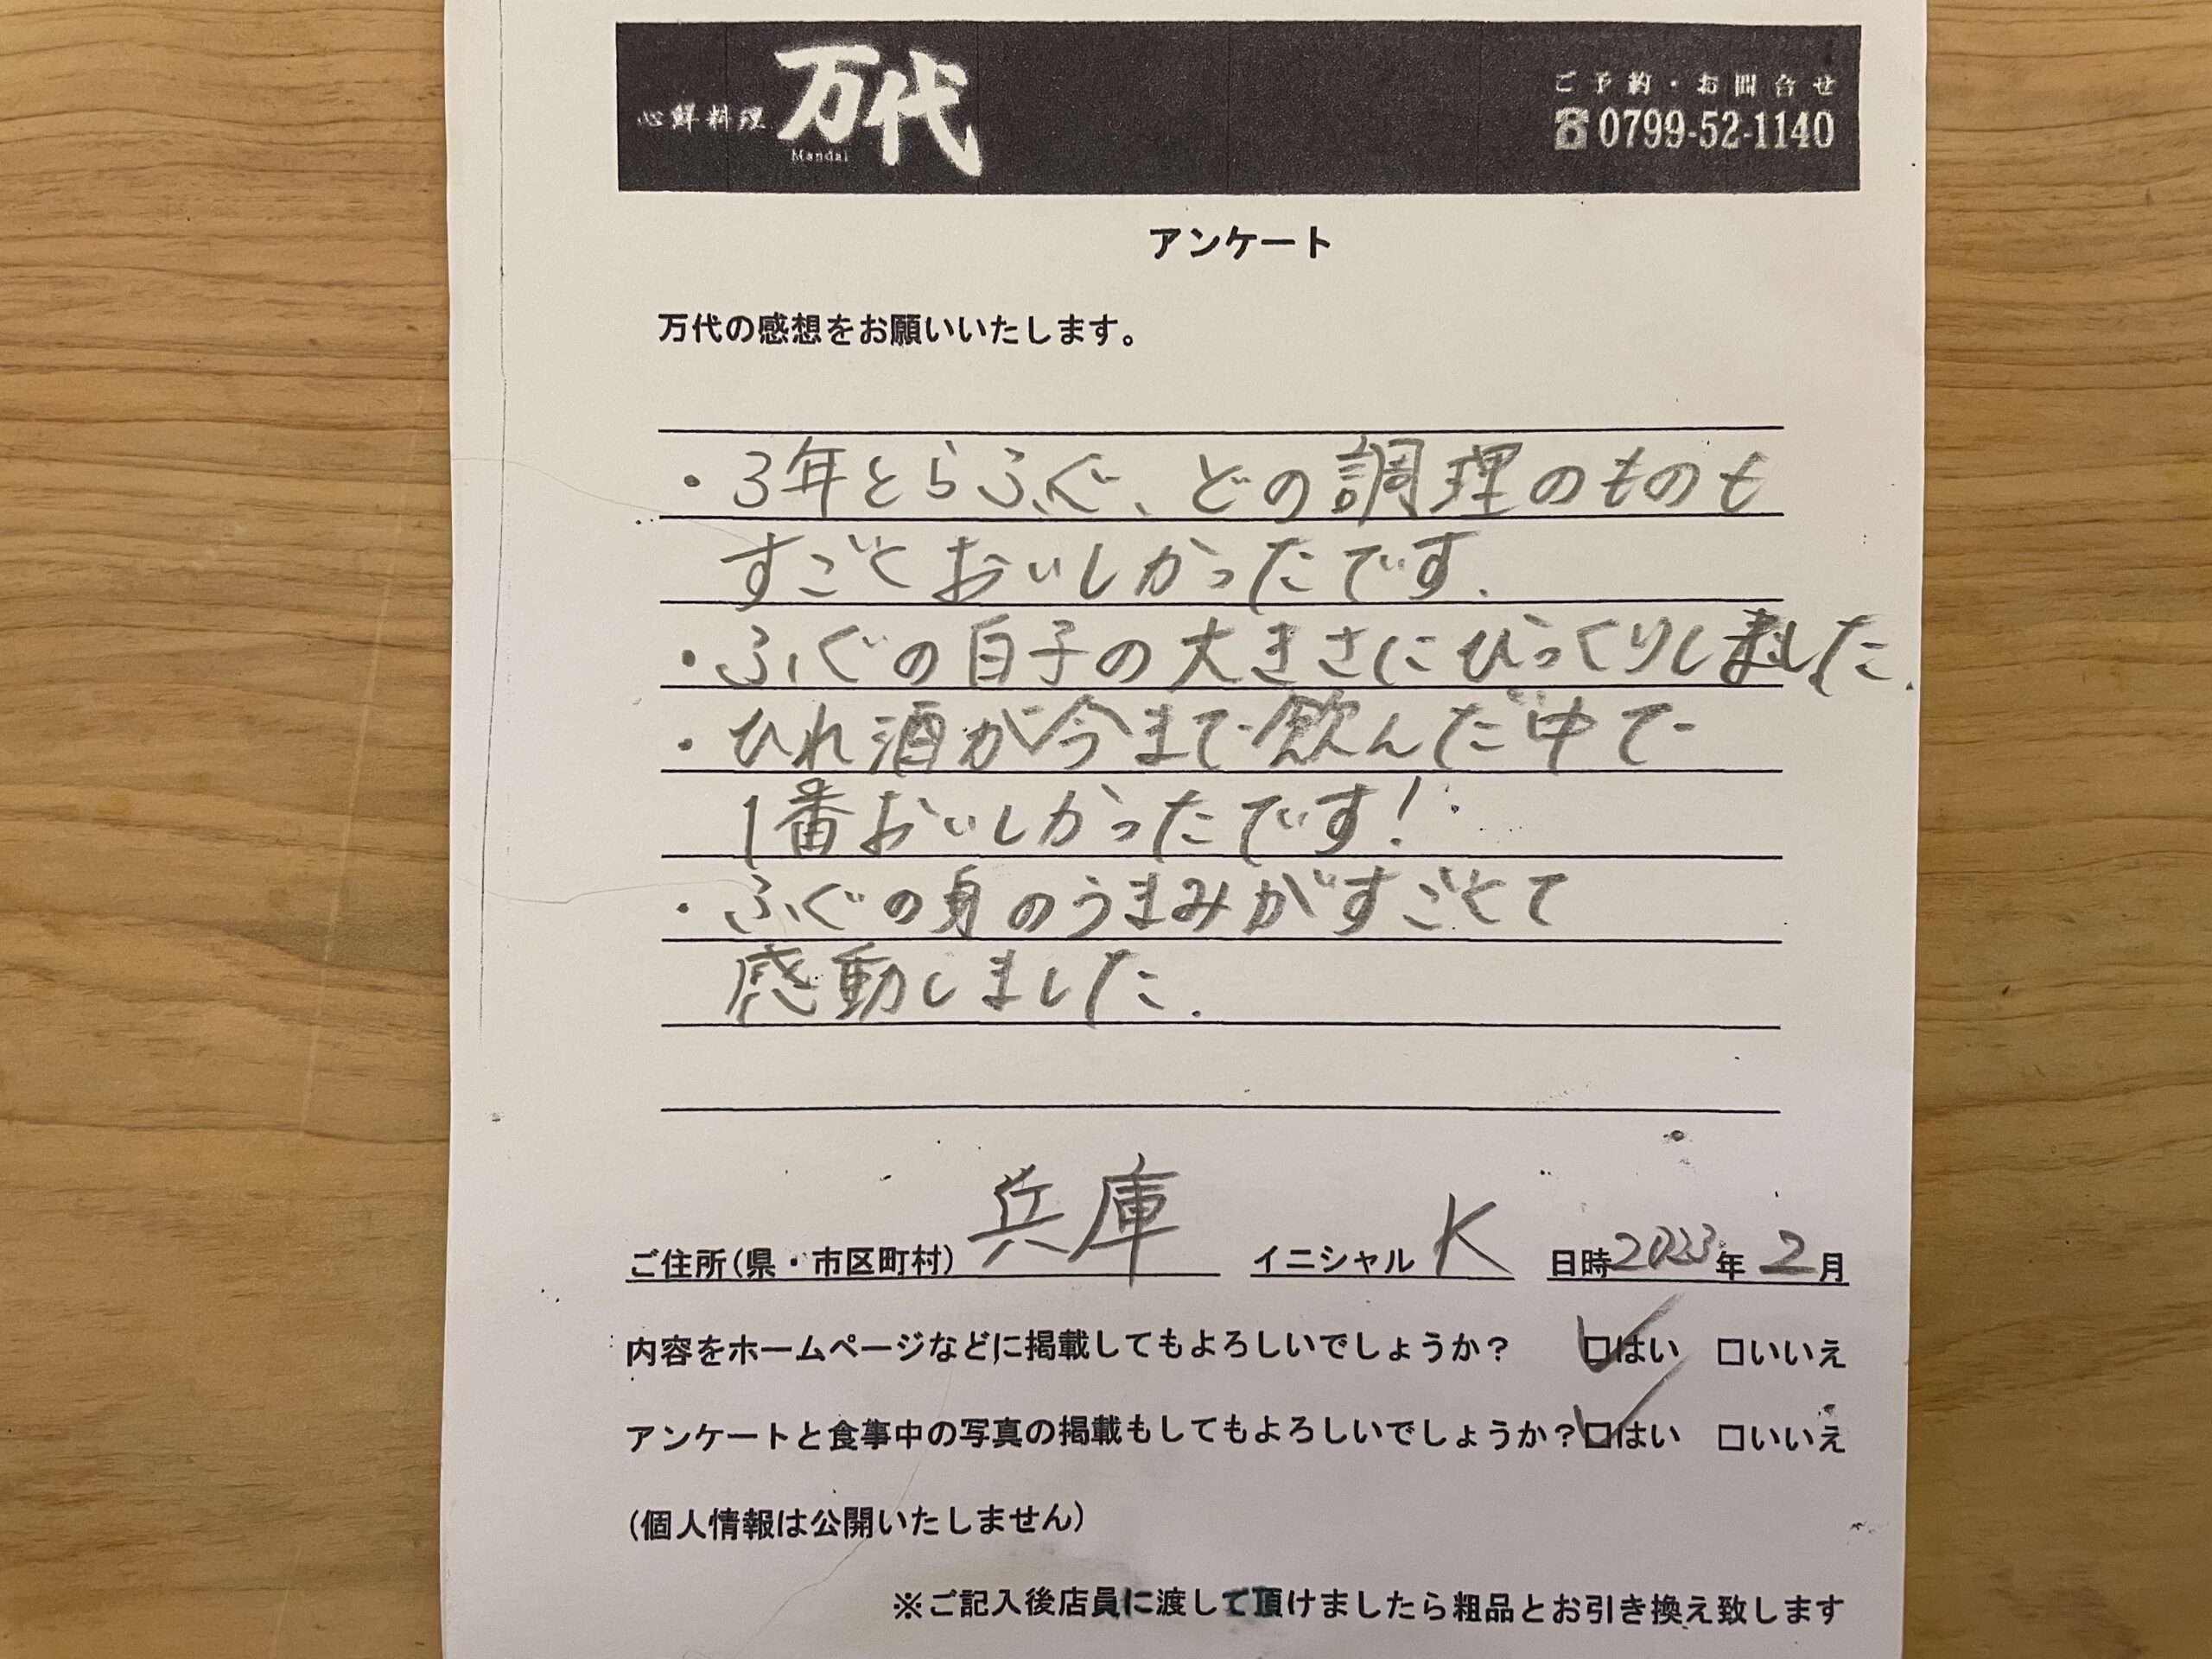 心鮮料理 万代
Mandai
ご予約・お問合せ
☎0799-52-1140
アンケート
万代の感想をお願いいたします。
・3年とらふぐ、どの調理のものも
すごくおいしかったです.
・ふぐの白子の大きさにびっくりしました.
・ひれ酒が今まで飲んだ中で
1番おいしかったです!
・ふぐの身のうまみがすごくて
感動しました.
ご住所(県・市区町村) 兵庫 イニシャル K 日時2023年 2月
内容をホームページなどに掲載してもよろしいでしょうか? ☑はい □いいえ
アンケートと食事中の写真の掲載もしてもよろしいでしょうか?☑はい □いいえ
(個人情報は公開いたしません)
※ご記入後店員に渡して頂けましたら粗品とお引き換え致します